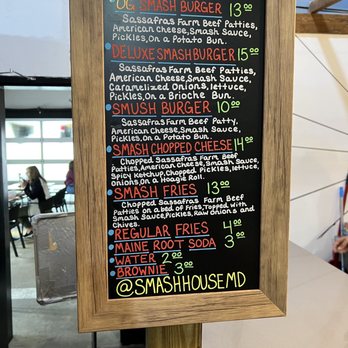 OG SMASH BURGER 13.00
Sassafras Farm Beef Patties,
American Cheese, Smash Sauce,
Pickles, On a Potato Bun.
DELUXE SMASH BURGER 15.00
Sassafras Farm Beef Patties,
American Cheese, Smash Sauce,
Caramelized Onions, lettuce,
Pickles, On a Brioche Bun.
SMUSH BURGER 10.00
Sassafras Farm Beef Patty,
American Cheese, Smash Sauce,
Pickles, On a Potato Bun.
SMASH CHOPPED CHEESE 14.00
Chopped Sassafras Farm Beef
Patties, American Cheese, Smash Sauce,
Spicy Ketchup, Chopped Pickles, lettuce,
Onions, On a Hoagie Roll.
SMASH FRIES 13.00
Chopped Sassafras Farm Beef
Patties on a bed of Fries, Topped with
Smash Sauce, Pickles, Raw Onions and
Chives.
REGULAR FRIES 4.00
MAINE ROOT SODA 3.00
WATER 2.00
BROWNIE 3.00
@SMASHHOUSEMD